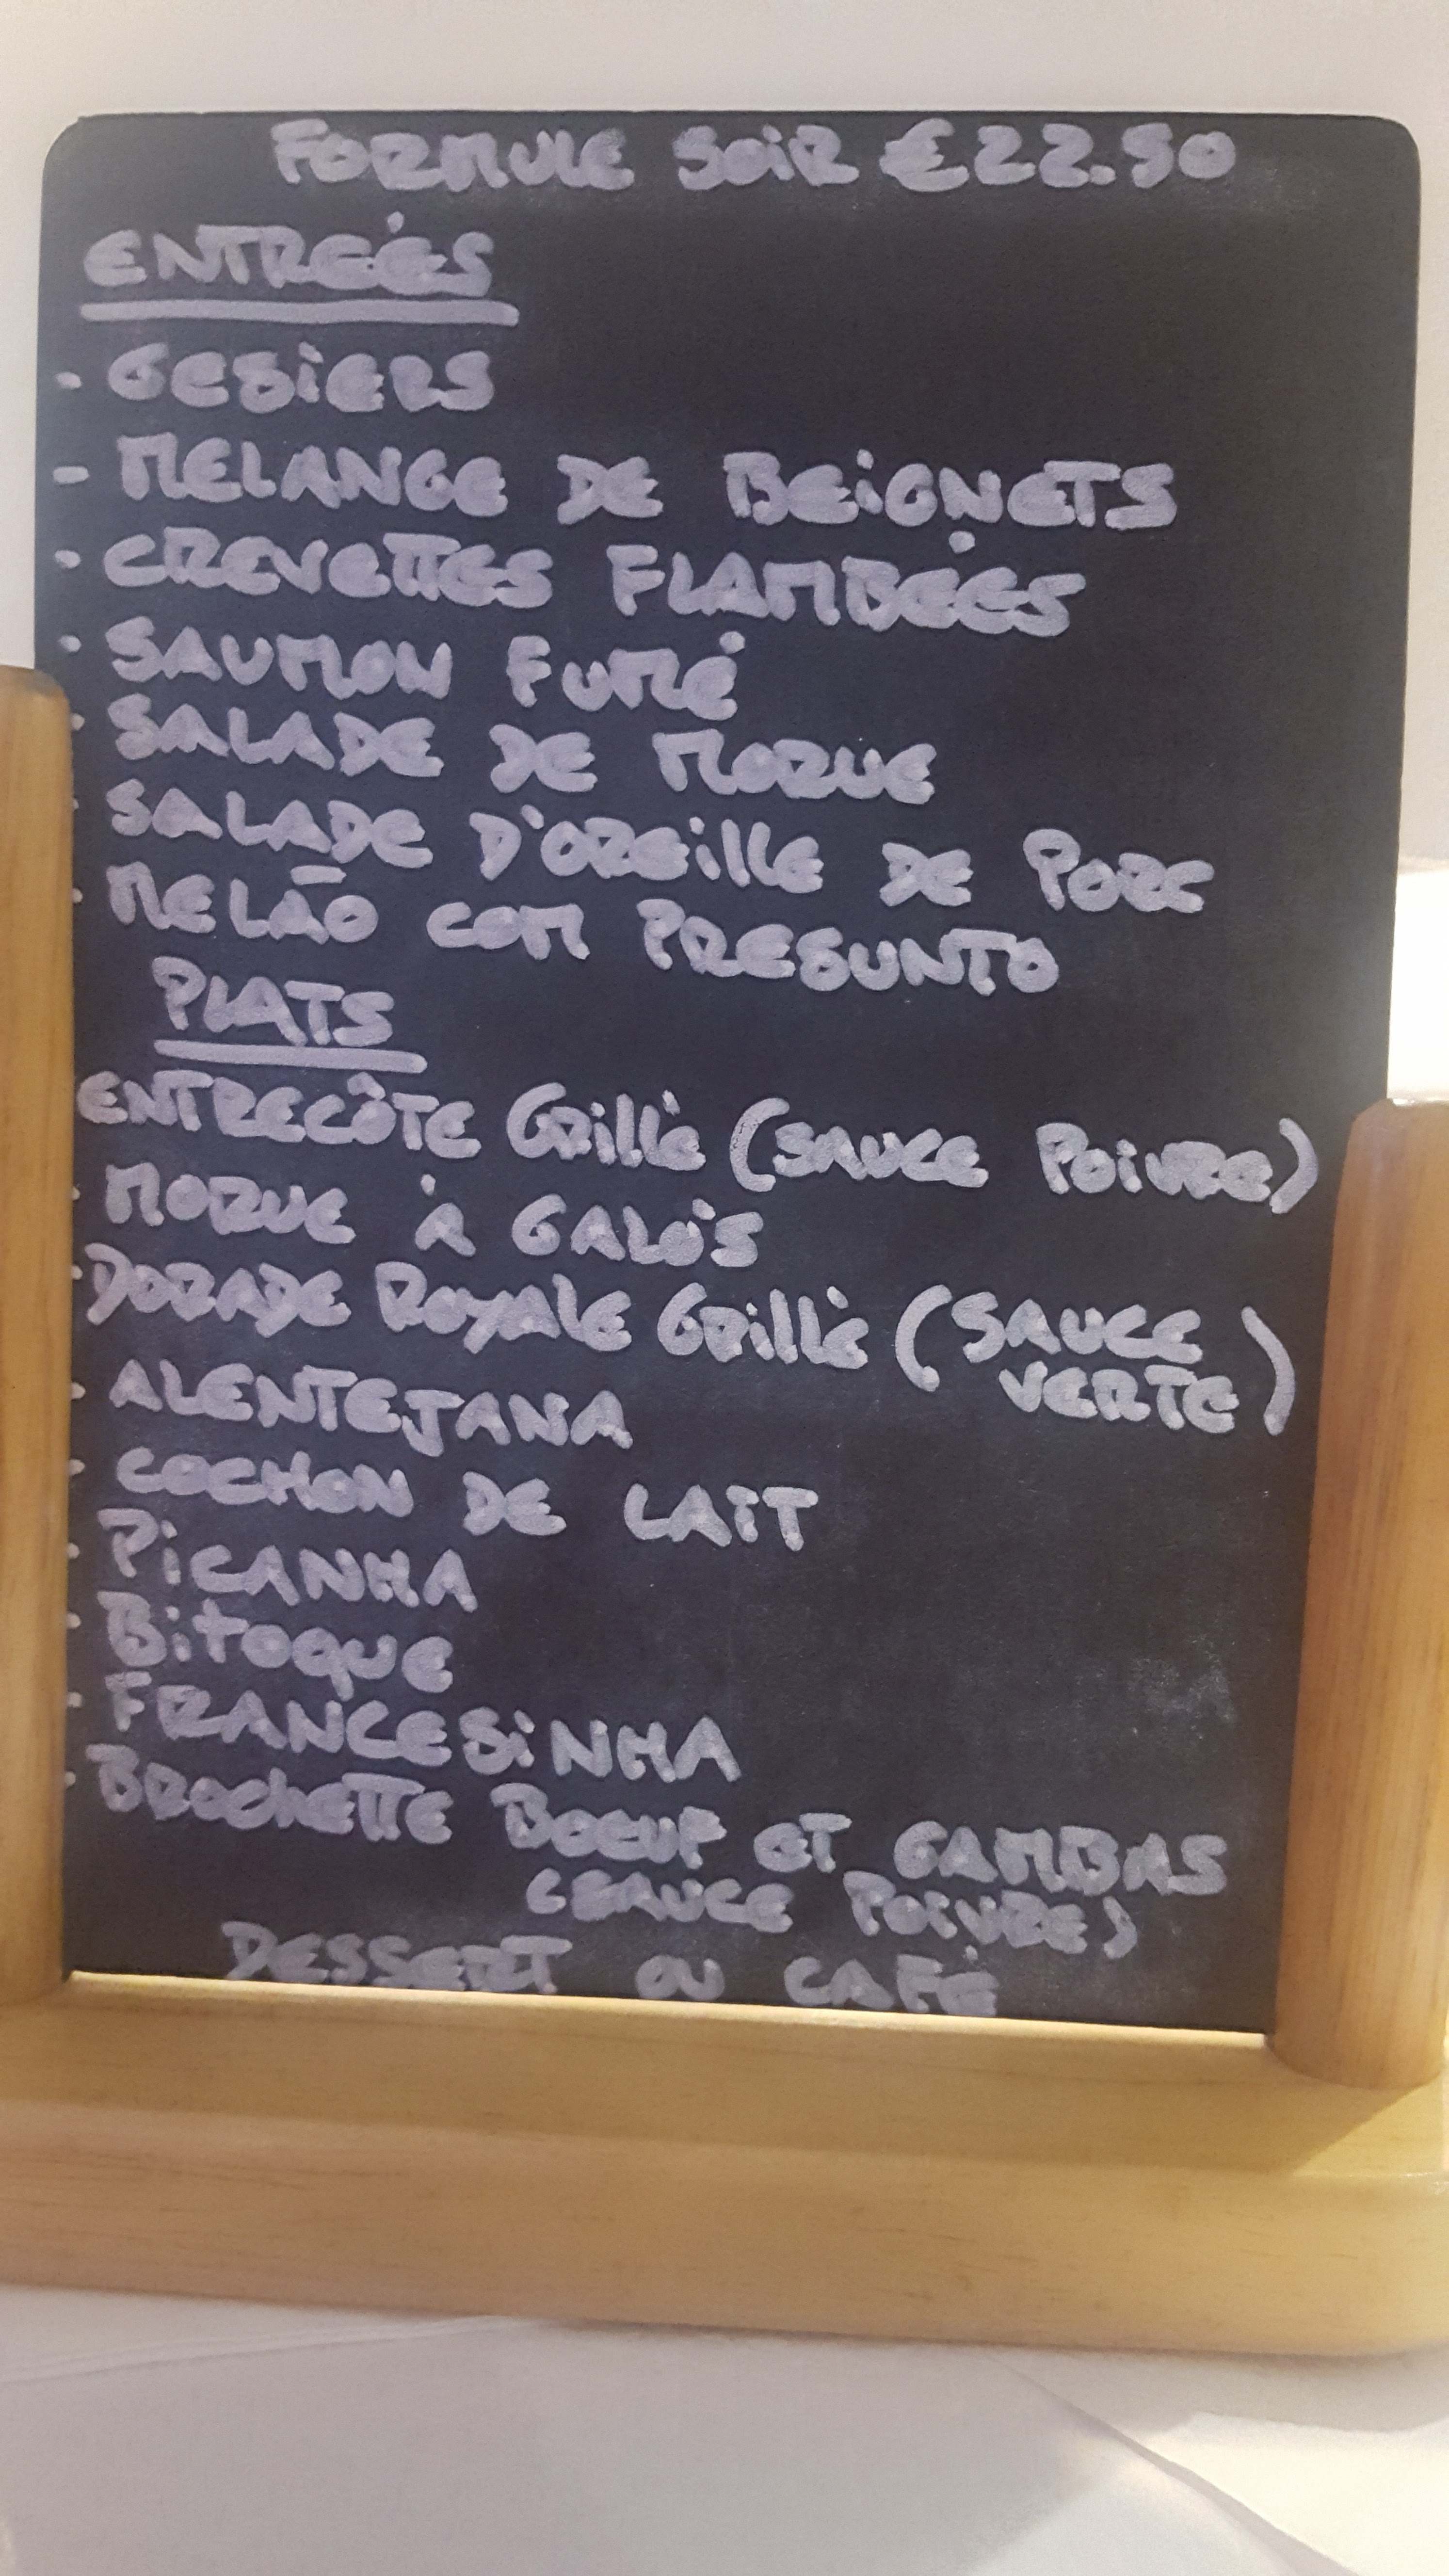 FORMULE SOIR €22.50
ENTREÉS
- GESIERS
- MELANGE DE BEIGNETS
- CREVETTES FLAMBEÉS
- SAUMON FUMÉ
- SALADE DE MORUE
- SALADE D'OREILLE DE PORC
- MELÃO COM PRESUNTO
PLATS
ENTRECÔTE GRILLÉ (SAUCE POIVRE)
- MORUE À GALÓS
- DORADE ROYALE GRILLÉ (SAUCE
VERTE)
- ALENTEJANA
- COCHON DE LAIT
- PICANHA
- BITOQUE
- FRANCESINHA
- BROCHETTE BOEUF ET GAMBAS
(SAUCE POIVRE)
DESSERT OU CAFÉ